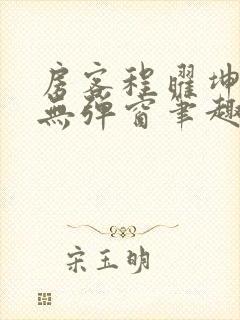 房客程曜坤
無彈窗筆趣
宋玉明